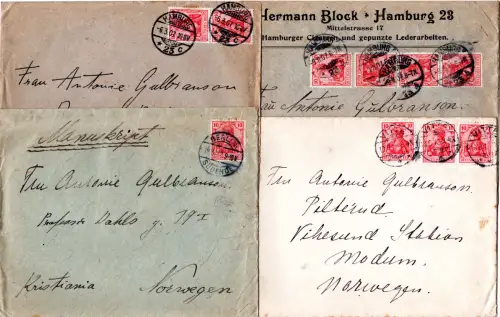 HAMBURG
Frau Antonie Gulbranson
Hermann Block • Hamburg 23
Mittelstrasse 17
Hamburger Ciselier- und gepunzte Lederarbeiten.
HAMBURG
Frau Antonie Gulbranson.
Manuskript
BERLIN
SÜDENDE
10
10
Fru Antonie Gulbranson.
Professor Dahls g. 19 I
Kristiania Norwegen
Fru Antonie Gulbranson
Pilterud
Vikesund Station
Modum.
Norwegen.